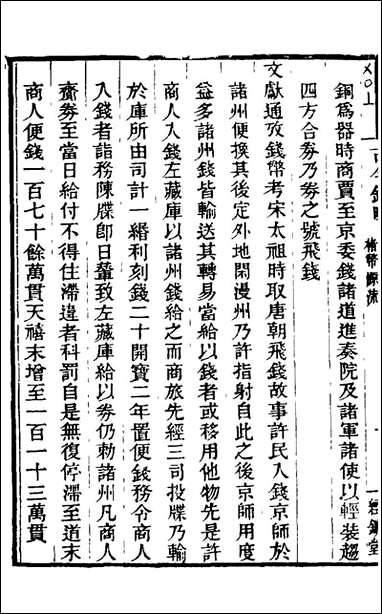 銅爲器時商賈至京委錢諸道進奏院及諸軍諸使以輕裝趨
四方合劵乃劵之號飛錢
文獻通攷錢幣考宋太祖時取唐朝飛錢故事許民入錢京師於
諸州便換其後定外地閑漫州乃許指射自此之後京師用度
益多諸州錢皆輸送其轉易當給以錢者或移用他物先是許
商人入錢左藏庫以諸州錢給之而商旅先經三司投牒乃輸
於庫所由司計一緡利刻錢二十開寶二年置便錢務令商人
入錢者詣務陳牒卽日輦致左藏庫給以劵仍勅諸州凡商人
齎劵至當日給付不得住滯違者科罰自是無復停滯至道末
商人便錢一百七十餘萬貫天禧末增至一百一十三萬貫